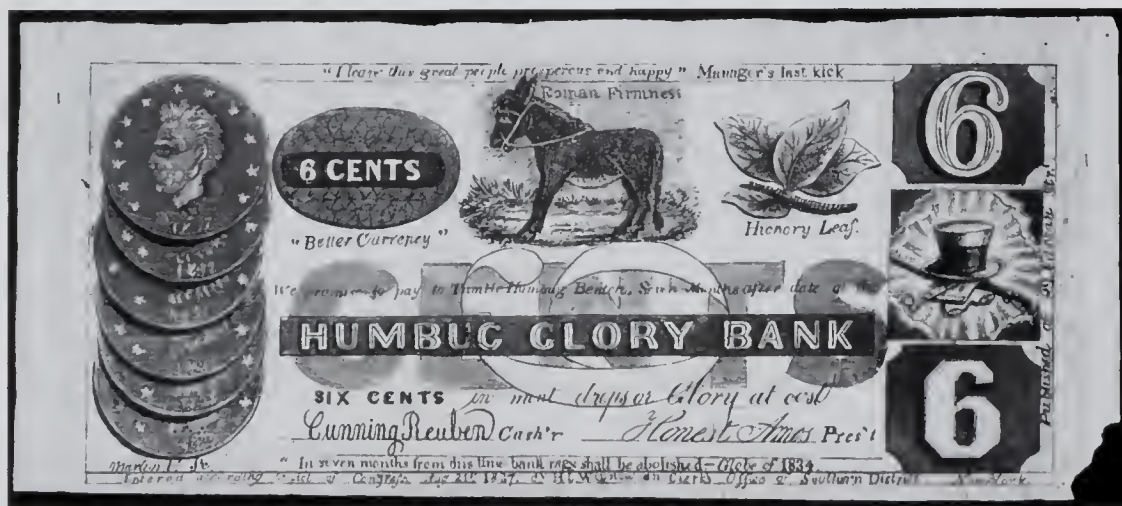 "I leave this great people prosperous and happy" Manager's last kick
Roman Firmness
6 CENTS
"Better Currency"
Hickory Leaf.
6
We promise to pay to Humbug Benton, Months after date at the
HUMBUG GLORY BANK
SIX CENTS in mint drops or Glory at cost
Cunning Reuben Cash'r Honest Amos Pres't
6
"In seven months from this time bank rags shall be abolished – Globe of 1834.
Entered according to act of Congress Aug 21st 1837, by H. in Clerks Office of Southern District New York.
Published